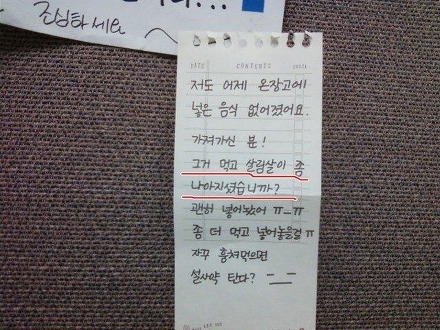 조심하세요
DATE CONTENTS
저도 어제 온장고에
넣은 음식 없어졌어요.
가져가신 분!
그거 먹고 살림살이 좀
나아지셨습니까?
괜히 넣어놨어 ㅠ_ㅠ
좀 더 먹고 넣어놓을걸 ㅠ
자꾸 훔쳐먹으면
설사약 탄다? ㅡ_ㅡ